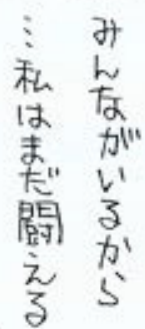 みんながいるから
…私はまだ闘える